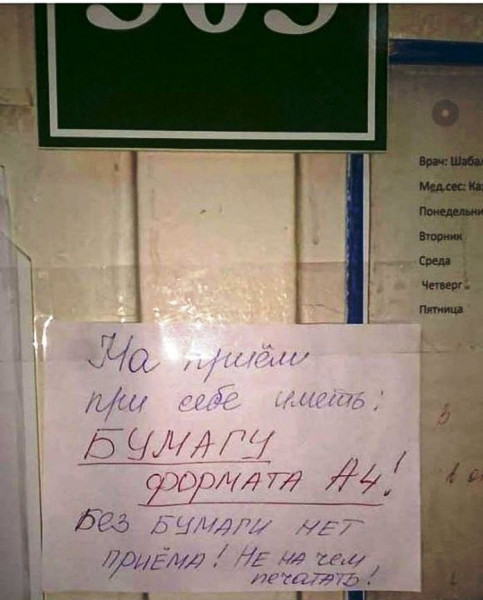 Врач: Шабал
Мед.сес: Ка
Понедельни
Вторник
Среда
Четверг
Пятница
На приём
при себе иметь:
БУМАГУ
ФОРМАТА А4!
Без БУМАГИ НЕТ
ПРИЁМА! НЕ НА чем
печатать!